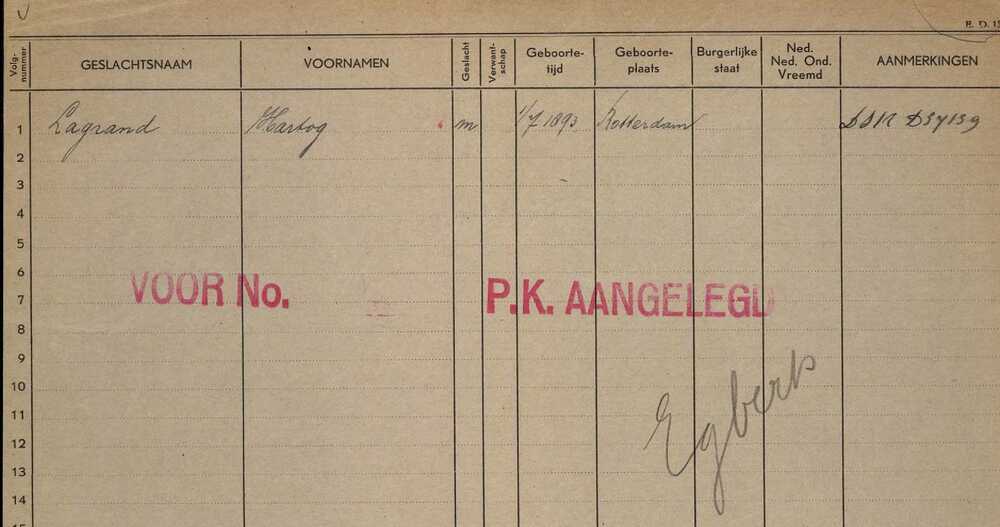 E. D. 15
Volg-nummer GESLACHTSNAAM VOORNAMEN Geslacht Verwant-schap Geboorte-tijd Geboorte-plaats Burgerlijke staat Ned. Ned. Ond. Vreemd AANMERKINGEN
1 Lagrand Hartog m 1/7 1893 Rotterdam
2
3
4
5
6
VOOR No. P.K. AANGELEGD
7
8
9
10
Egberts
11
12
13
14
15